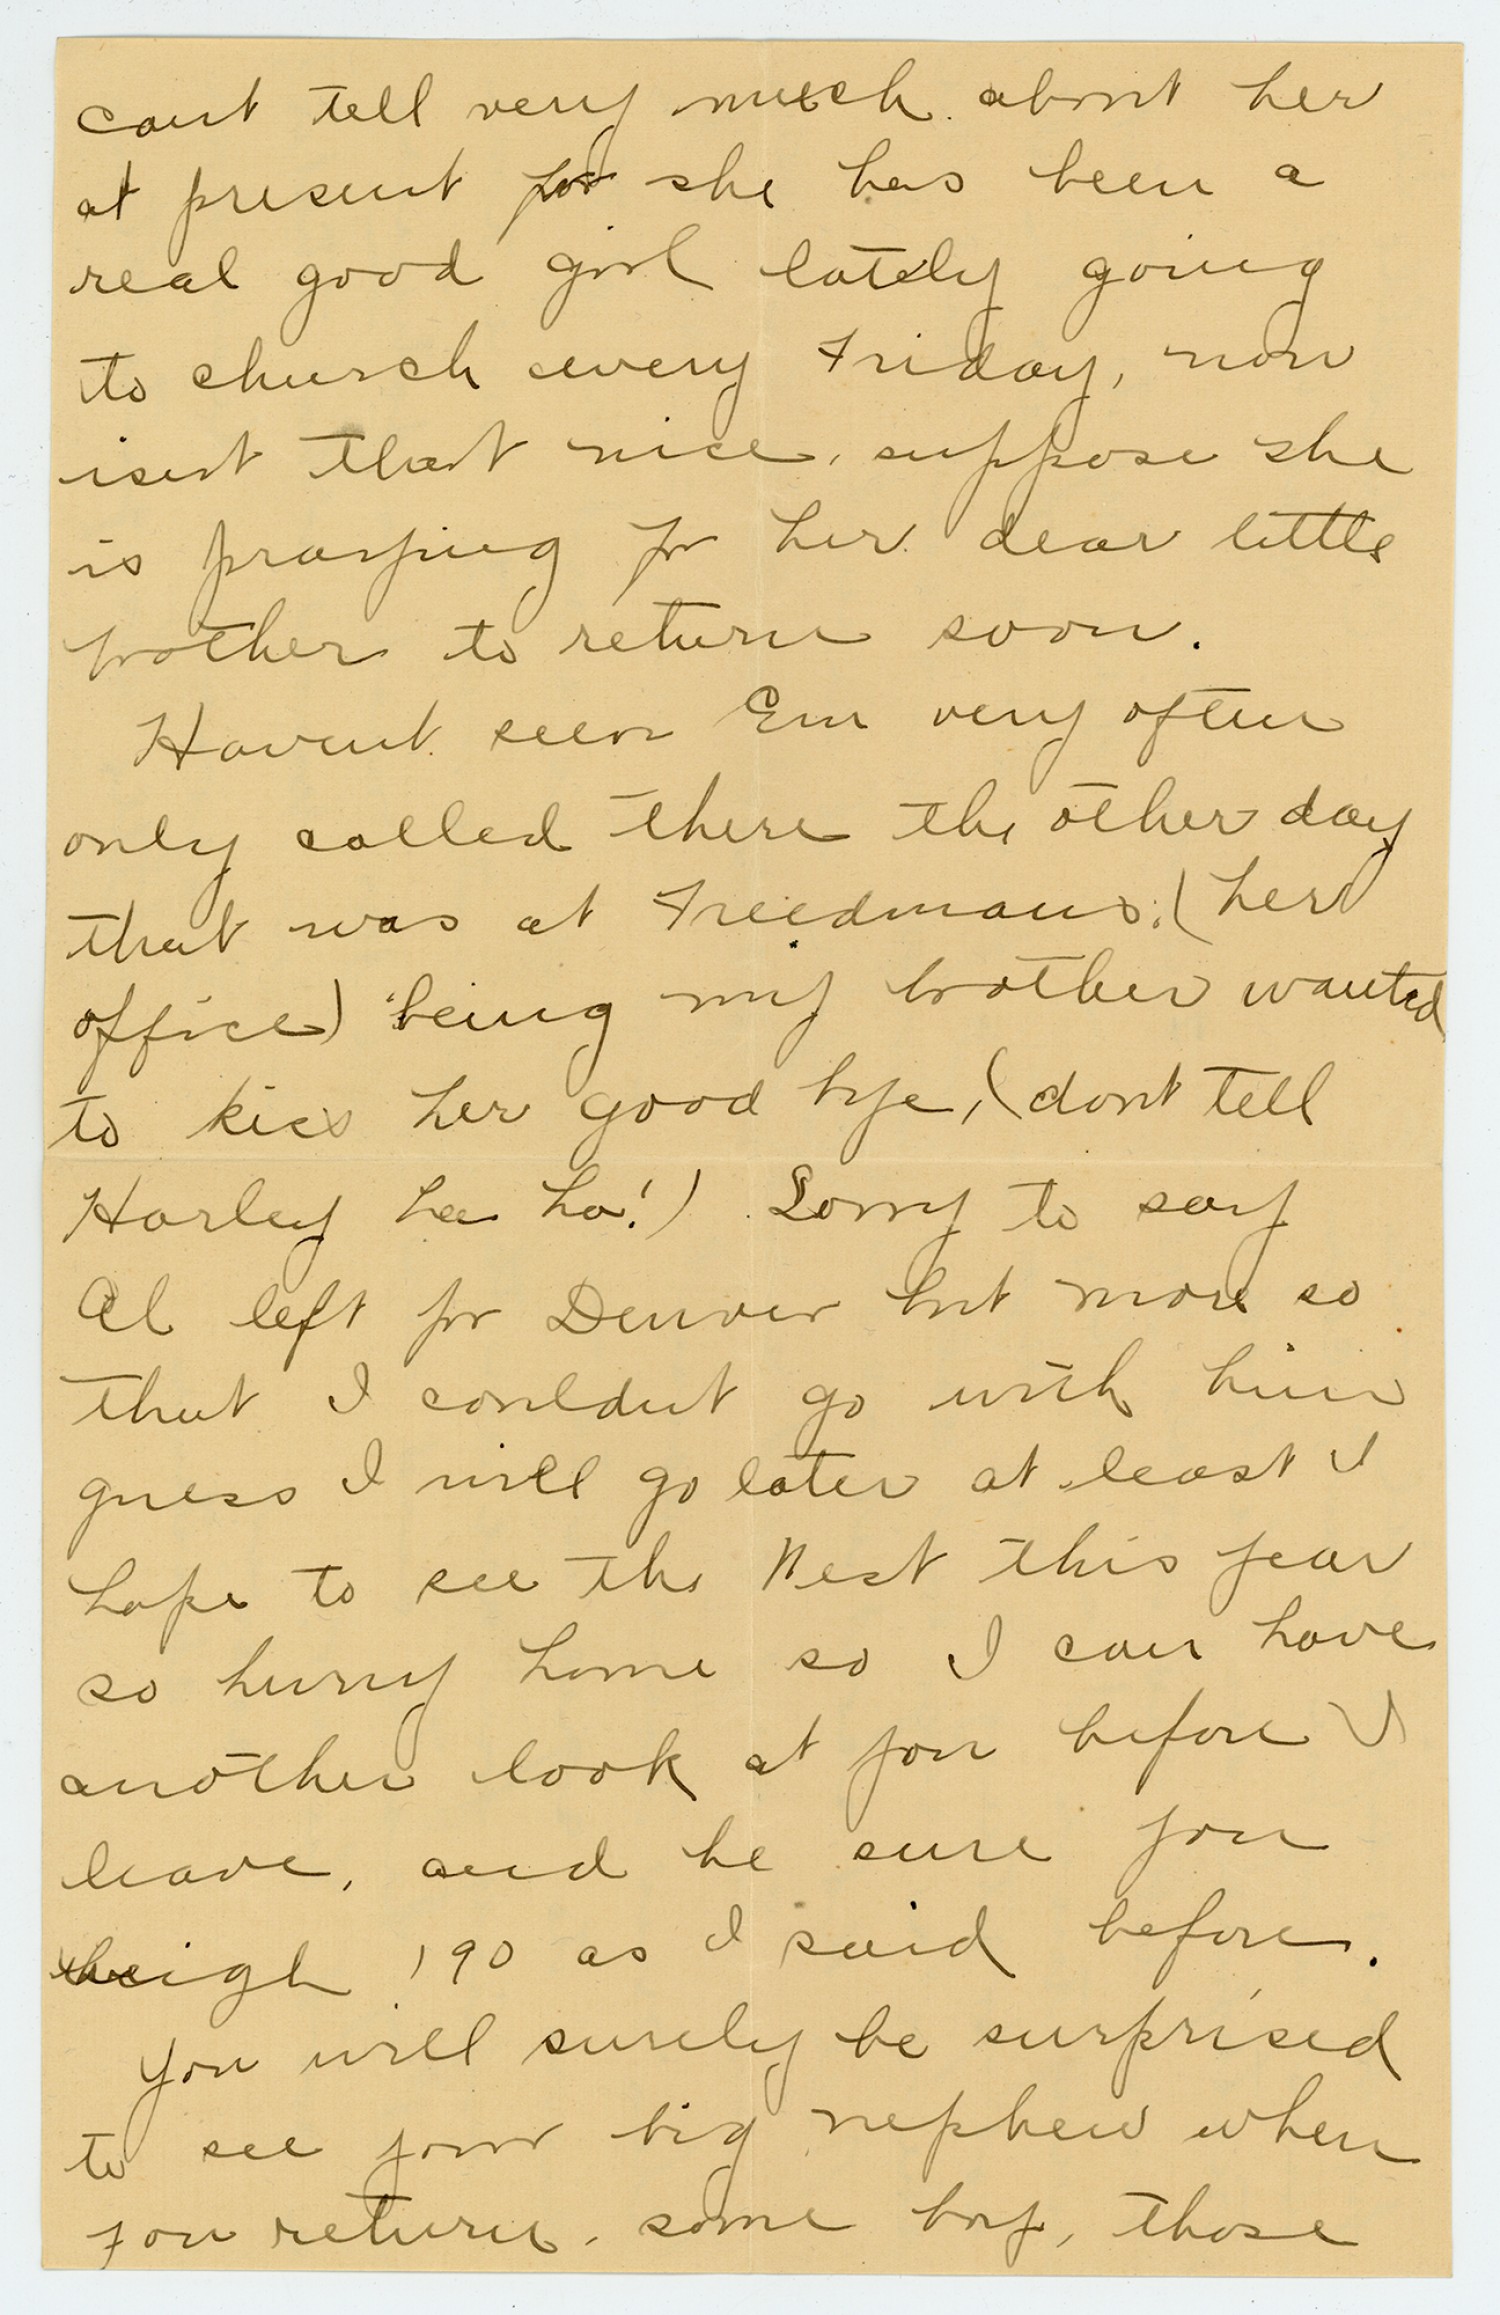 cant tell very much about her
at present for she has been a
real good girl lately going
to church every Friday, now
isent that nice, suppose she
is praying for her dear little
brother to return soon.
Havent seen Em very often
only called there the other day
that was at Freedmans, (her
office) being my brother wanted
to kiss her good bye, (dont tell
Harley ha ha!) Sorry to say
Al left for Denver but more so
that I couldnt go with him
guess I will go later at least I
hope to see the West this year
so hurry home so I can have
another look at you before I
leave, and be sure you
weigh 190 as I said before.
You will surely be surprised
to see your big nephew when
you return, some boy, those